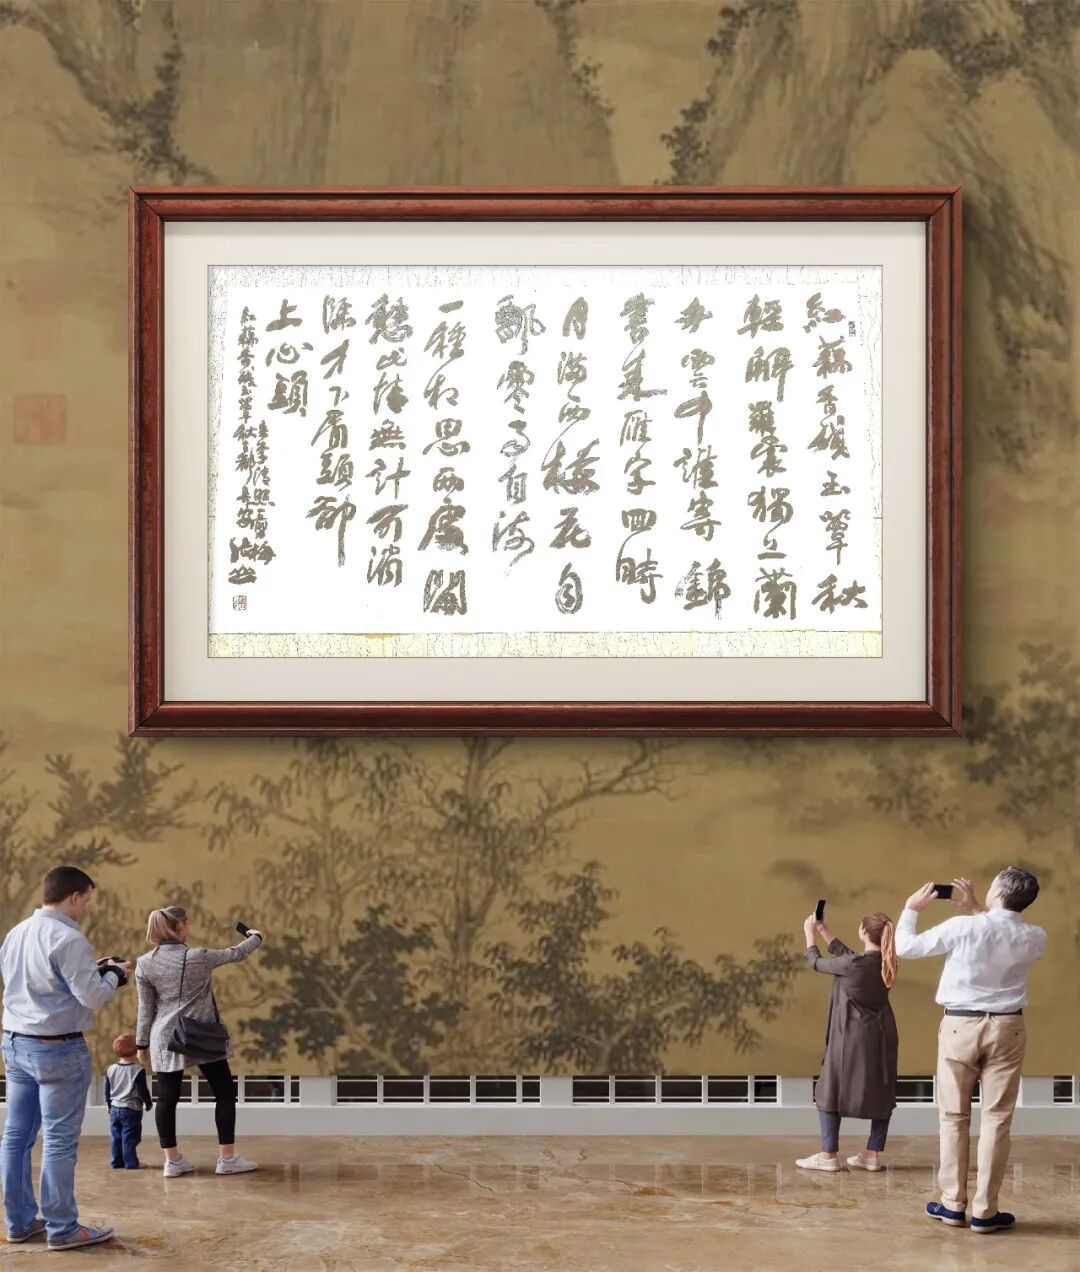 紅藕香殘玉簟秋
輕解羅裳獨上蘭
舟雲中誰寄錦
書來雁字回時
月滿西樓花自
飄零水自流
一種相思兩處閑
愁此情無計可消
除才下眉頭卻
上心頭
李清照一剪梅
紅藕香殘玉簟秋